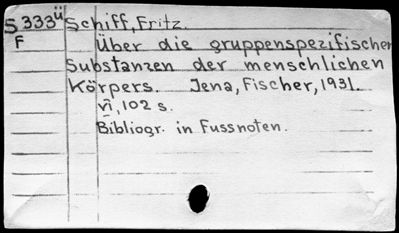 S333ü Schiff, Fritz.
F Über die gruppenspezifischen
Substanzen der menschlichen
Körpers. Jena, Fischer, 1931.
VI, 102 s.
Bibliogr. in Fussnoten.